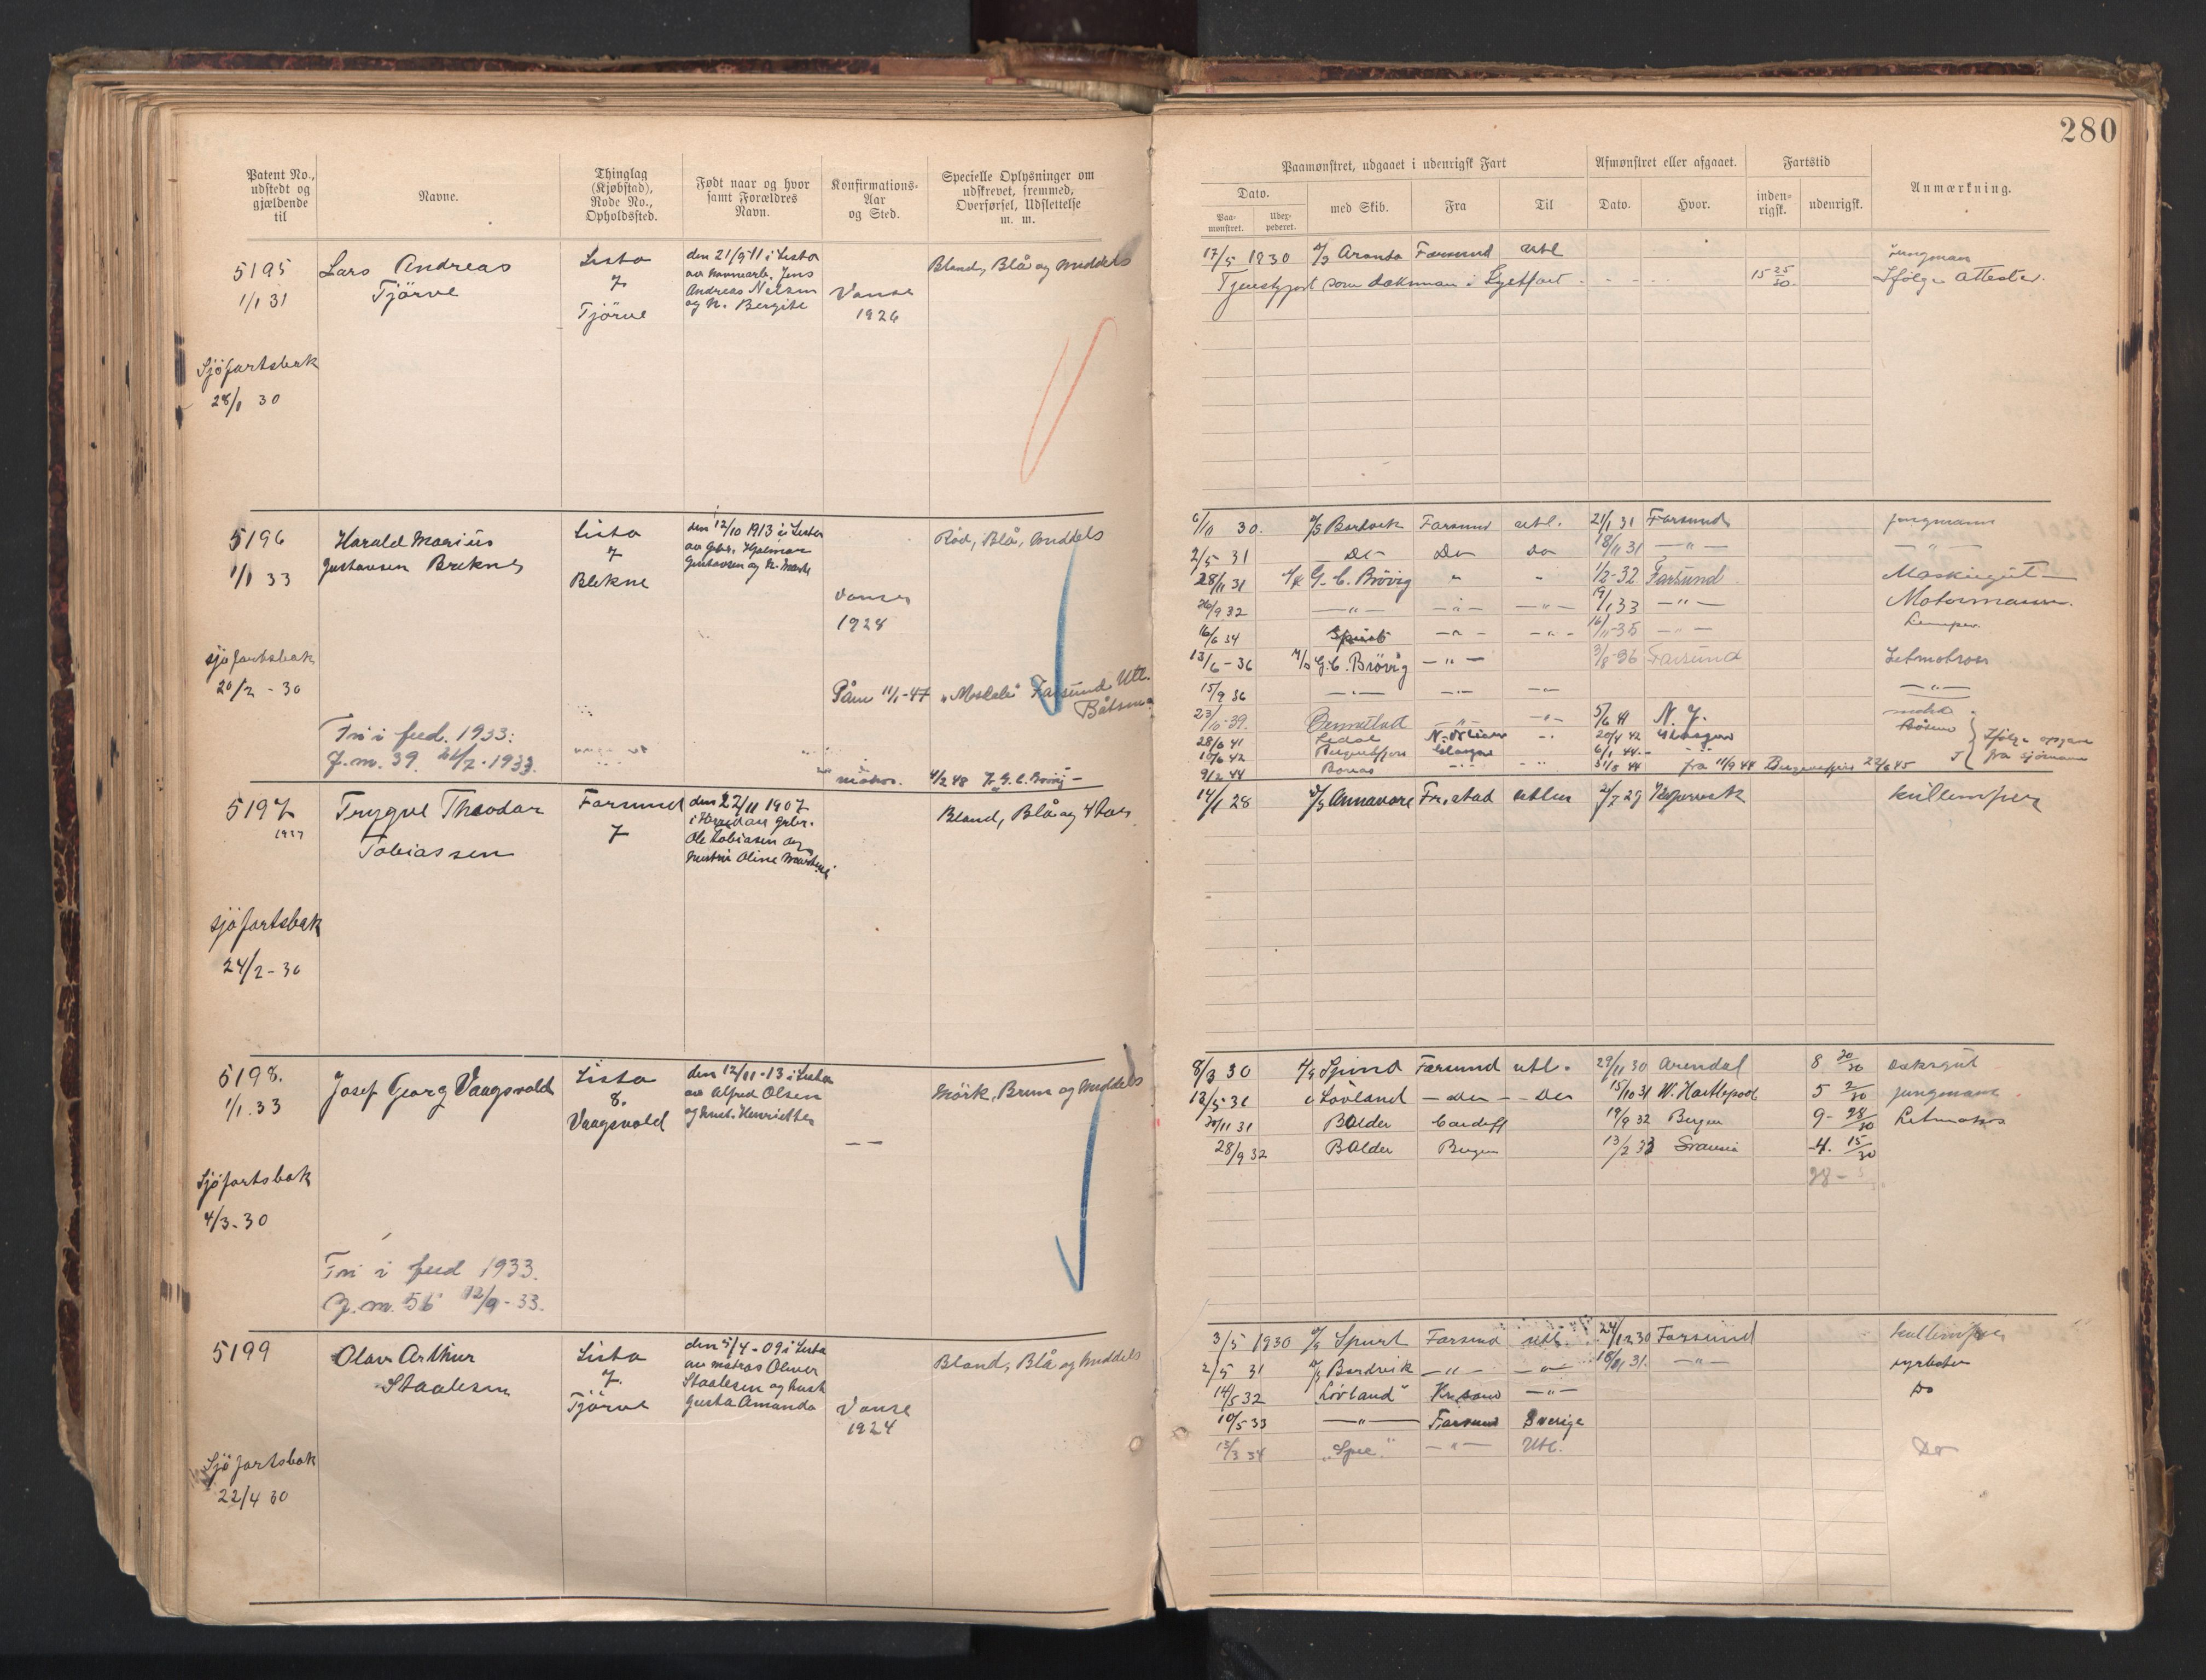 280
Patent No., udstedt og gjældende til
Navne.
Thinglag (Kjøbstad), Rode No., Opholdssted.
Født naar og hvor samt Forældres Navn.
Konfirmations-Aar og Sted.
Specielle Oplysninger om udskrevet, fremmed, Overførsel, Udslettelse m. m.
Paamønstret, udgaaet i udenrigsk Fart
Afmønstret eller afgaaet.
Fartstid
Anmærkning.
Dato.
Paa-mønstret.
Udex-pederet.
med Skib.
Fra
Til
Dato.
Hvor.
inden-rigsk.
udenrigsk.
5195
1/1 31
Sjöfartsbok
28/1 30
Lars Andreas
Tjörve
Lista
7
Tjörve
den 21/9 11 i Lista
Jens
Andreas Nelsen
og h. Bergite
Vanse
1926
Blond, Blå og middels
17/5 1930 Farsund Utl jungman
Tjenstgjort som i 15 25/30 Ifölge Attester.
5196
1/1 33
sjöfartsbok
20/2 - 30
Harald Marius
Gustavsen Brekne
Lista
7
Brekne
den 12/10 1913 i Lista
av gbr. Hjalmar
Gustavsen og h. Marte
Vanse
1928
Rød, Blå, middels
Påm 11/1-47 Farsund Utl.
Båtsm
Fri i fred. 1933.
J.m. 39.
matros. 4/2 48 G. C. Brövig
6/11 30. D/S Bardvik Farsund utl. 21/1 31 Farsund jungmann
2/5 31 Do Do do 18/11 31 — " — — " —
28/11 31 M/S G. C. Brövig " " 1/2-32 Farsund Maskingut
26/9 32 — " — — " — — " — 9/1 33 — " — Motormann.
16/6 34 Spurt — " — — " — 16/11-35 — " — Lemper
13/6 - 36 M/S G. C. Brövig — " — 3/8-36 Farsund Letmatros
15/9 36 — " — — " — — " — — " —
23/11-39. — " — — " — 5/6 41 N. Y.
28/6 41 20/4 42 Glasgow
10/6 42 Glasgow 6/1 44
9/2 44 Boreas 31/8 44 fra 11/9 44 Bergensfjord 22/6 45
Ifølge opgave
fra sjømann
5197
1937
sjöfartsbok
24/2 - 30
Trygve Theodor
Tobiassen
Farsund
7
den 22/11 1907
i Herad av gbr.
Ole Tobiasen og
hustru Oline
Blond, Blå og
14/1 28 D/S Annavore Fr.stad utlen 2/7 29 Kopervik kullemper
5198.
1/1. 33
Sjöfartsbok
4/3 - 30
Josef Georg Vaagsvold
Lista
8.
Vaagsvold
den 12/11 - 13 i Lista
av Alfred Olsen
og hust. Henriette
— —
Mörk, Brun og middels
Fri i fred 1933.
J.m. 56 12/9 - 33.
8/3 30 D/S Spind Farsund utl. 29/11 30 Arendal 8 20/30 dæksgut
12/5 31 Lovland — do — Do 15/10 31 W. Hartlepool 5 2/30 jungmann
20/11 31 Balder Cardiff 19/9 32 Bergen 9 - 28/30 Letmatros
28/9 32 Balder Bergen 13/2 33 4. 15/30
28 -
5199
Sjöfartsbok
22/4 30
Olav Arthur
Staalesen
Lista
7.
Tjörve
den 5/4 - 09 i Lista
av matros Oliver
Staalesen og hust
Gusta Amanda
Vanse
1924
Blond, Blå og middels
3/5 1930 D/S Spurt Farsund utl. 24/12 30 Farsund kullemper
2/5 31 D/S Bardvik — " — — " — 18/11 31. — " — fyrbøter
14/5 32 "Lovland" Kr.sand — " — Do
10/5 33 — " — Farsund Sverige
13/3 34 — " — Utl. Do